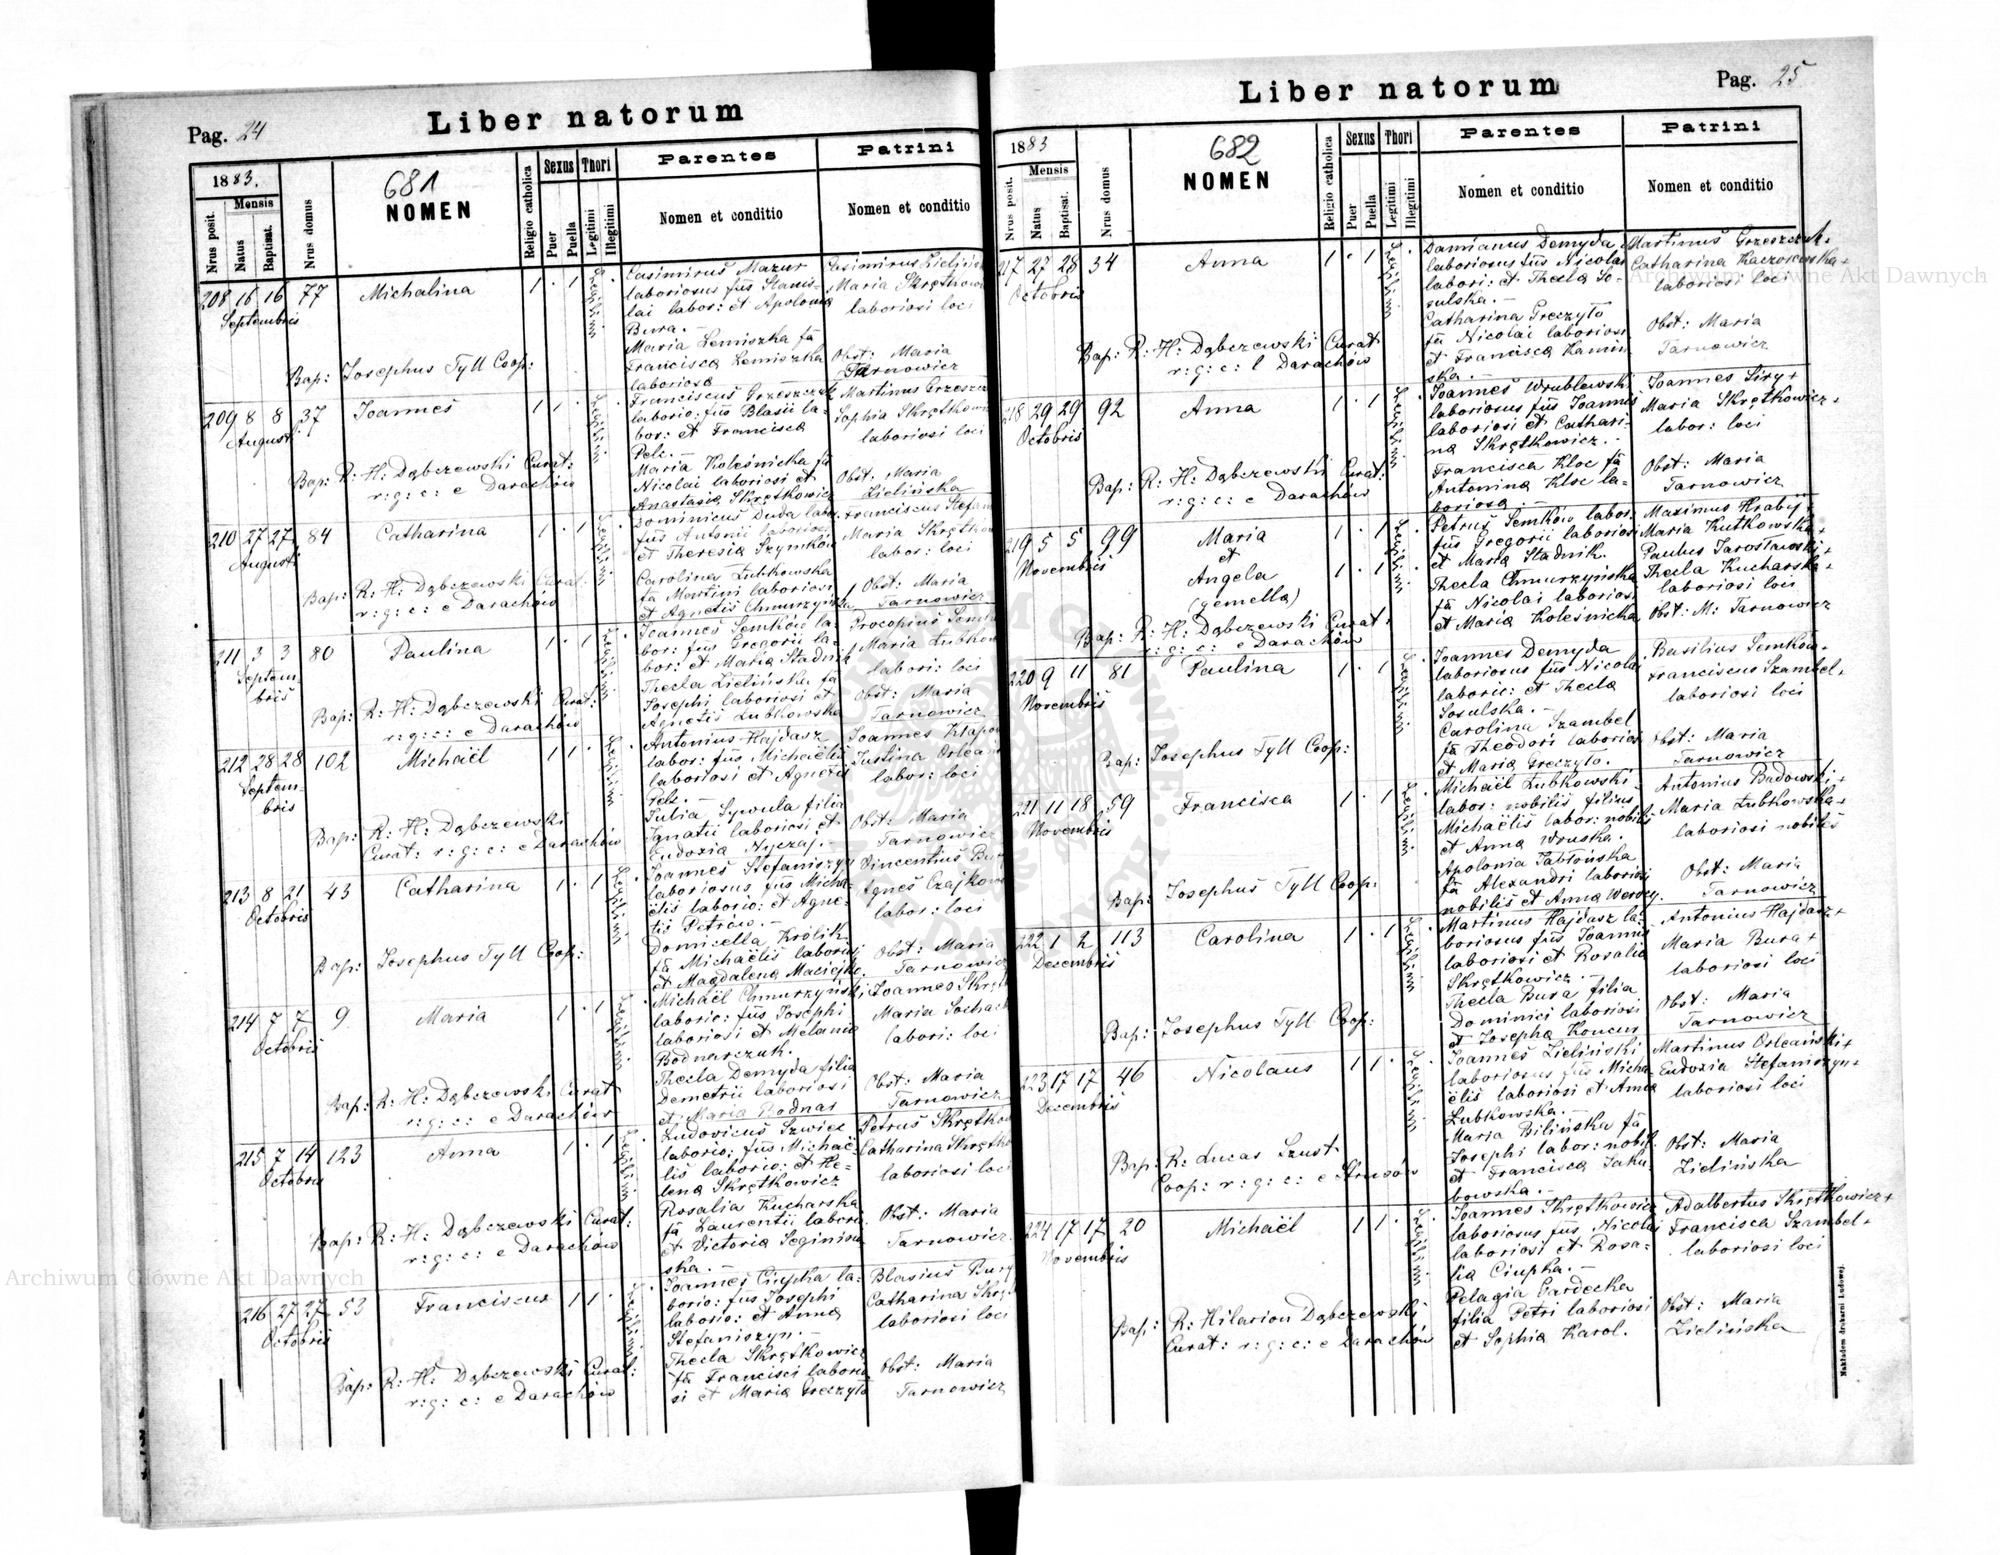 Pag. 24
Liber natorum
1883.
Nrus posit.
Mensis
Natus
Baptisat.
Nrus domus
681
NOMEN
Religio catholica
Sexus
Puer
Puella
Thori
Legitimi
Illegitimi
Parentes
Nomen et conditio
Patrini
Nomen et conditio
208 16 16 77 Michalina 1 · 1
Septembris
Casimirus Mazur
laboriosus fus Stanis-
lai labor: et Apolonia
Bura. —
Maria Lemiszka fa
Francisca Lemiszka
laboriosa
Casimirus Zieliński
Maria Skrętkow
laboriosi loci
Obst: Maria
Tarnowicz
Bap: Josephus Tyll Coop:
209 8 8 37 Joannes 1 1 ·
Augusti
Franciscus Grzeszczuk
laborio: fus Blasii la-
bor: et Francisca
Pelc. —
Maria Kolesnicka fa
Nicolai laboriosi et
Anastasia Skrętkowicz
Martinus Grzeszcz
Sophia Skrętkowi
laboriosi loci
Obst: Maria
Zielińska
Bap: R: H: Dąbczewski Curat:
r: g: c: e Darachów
210 27 27 84 Catharina 1 · 1
Augusti
Dominicus Duda labor
fus Antonii laboriosi
et Theresia Szymków
Carolina Łubkowska
fa Martini laboriosi
et Agnetis Chmurzyńska
Franciscus Stefan
Maria Skrętkow
labor: loci
Obst: Maria
Tarnowicz
Bap: R: H: Dąbczewski Curat:
r: g: c: e Darachów
211 3 3 80 Paulina 1 · 1
Septem-
bris
Joannes Semków la-
bor: fus Gregorii la-
bor: et Maria Stadnik
Thecla Zielińska fa
Josephi laboriosi et
Agnetis Łubkowska
Procopius Semk
Maria Łubkow
labori: loci
Obst: Maria
Tarnowicz
Bap: R: H: Dąbczewski Curat:
r: g: c: e Darachów
212 28 28 102 Michaël 1 1 ·
Septem-
bris
Antonius Hajdasz
labor: fus Michaëlis
laboriosi et Agnetis
Pelc. —
Julia Sywula filia
Ignatii laboriosi et
Eudoxia Nyczaj. —
Joannes Kłapow
Justina Orlea
labor: loci
Obst: Maria
Tarnowicz
Bap: R: H: Dąbczewski
Curat: r: g: c: e Darachów
213 8 21 43 Catharina 1 · 1
Octobris
Joannes Stefaniszyn
laboriosus fus Micha-
ëlis laborio: et Agne-
tis Petrów. —
Domicella Królik
fa Michaëlis laboriosi
et Magdalena Maciejko
Vincentius Bur
Agnes Czajkow
labor: loci
Obst: Maria
Tarnowicz
Bap: Josephus Tyll Coop:
214 7 7 9 Maria 1 · 1
Octobris
Michaël Chmurzyński
laborio: fus Josephi
laboriosi et Melania
Bodnarczuk.
Thecla Demyda filia
Demetrii laboriosi
et Maria Bodnar
Joannes Skręt
Maria Sochack
labori: loci
Obst: Maria
Tarnowicz
Bap: R: H: Dąbczewski Curat
r: g: c: e Darachów
215 7 14 123 Anna 1 · 1
Octobris
Ludovicus Szwiec
laborio: fus Michaë-
lis laborio: et He-
lena Skrętkowicz
Rosalia Kucharska
fa Laurentii labori
et Victoria Seginiow
ska. —
Petrus Skrętkow
Catharina Skrętko
laboriosi loci
Obst: Maria
Tarnowicz
Bap: R: H: Dąbczewski Curat:
r: g: c: e Darachów
216 27 27 53 Franciscus 1 1 ·
Octobris
Joannes Ciupka la-
borio: fus Josephi
laborio: et Anna
Stefaniszyn. —
Thecla Skrętkowicz
fa Francisci laborio
si et Maria Greczyło
Blasius Bury
Catharina Skrę
laboriosi loci
Obst: Maria
Tarnowicz
Bap: R: H: Dąbczewski Curat:
r: g: c: e Darachów
Liber natorum
Pag. 25
1883
Nrus posit.
Mensis
Natus
Baptisat.
Nrus domus
682
NOMEN
Religio catholica
Sexus
Puer
Puella
Thori
Legitimi
Illegitimi
Parentes
Nomen et conditio
Patrini
Nomen et conditio
217 27 28 34 Anna 1 · 1
Octobris
Damianus Demyda
laboriosus fus Nicolai
labori: et Thecla So-
sulska. —
Catharina Greczyło
fa Nicolai laboriosi
et Francisca Kamin
ska —
Martinus Grzeszczuk +
Catharina Kaczorowska +
laboriosi loci
Obst: Maria
Tarnowicz
Bap: R: H: Dąbczewski Curat
r: g: c: l Darachów
218 29 29 92 Anna 1 · 1
Octobris
Joannes Wrublewski
laboriosus fus Joannis
laboriosi et Cathari-
na Skrętkowicz. —
Francisca Kloc fa
Antonina Kloc la-
boriosa —
Joannes Siry +
Maria Skrętkowicz +
labor: loci
Obst: Maria
Tarnowicz
Bap: R: H: Dąbczewski Curat:
r: g: c: e Darachów
219 5 5 99 Maria 1 · 1
Novembris
et
Angela 1 · 1
(gemella)
Petrus Semków labor.
fus Gregorii laboriosi
et Maria Stadnik.
Thecla Chmurzyńska
fa Nicolai laboriosi
et Maria Kolesnicka
Maximus Hrabij +
Maria Kutkowska +
Paulus Jarosławski +
Thecla Kucharska +
laboriosi loci
Obst: M: Tarnowicz
Bap: R: H: Dąbczewski Curat:
r: g: c: e Darachów
220 9 11 81 Paulina 1 · 1
Novembris
Joannes Demyda
laboriosus fus Nicolai
laborio: et Thecla
Sosulska. —
Carolina Szambel
fa Theodori laboriosi
et Maria Greczyło.
Basilius Semków +
Franciscus Szambel +
laboriosi loci
Obst: Maria
Tarnowicz
Bap: Josephus Tyll Coop:
221 11 18 59 Francisca 1 · 1
Novembris
Michaël Łubkowski
labor: nobilis filius
Michaëlis labor: nobilis
et Anna Wruska.
Apolonia Jabłońska
fa Alexandri laboriosi
nobilis et Anna Werdey.
Antonius Badowski +
Maria Łubkowska +
laboriosi nobiles
Obst: Maria
Tarnowicz
Bap: Josephus Tyll Coop:
222 1 2 113 Carolina 1 · 1
Decembris
Martinus Hajdasz la-
boriosus fus Joannis
laboriosi et Rosalia
Skrętkowicz. —
Thecla Bura filia
Dominici laboriosi
et Josepha Koncur
Antonius Hajdasz +
Maria Bura +
laboriosi loci
Obst: Maria
Tarnowicz
Bap: Josephus Tyll Coop:
223 17 17 46 Nicolaus 1 1 ·
Decembris
Joannes Zieliński
laboriosus fus Micha
ëlis laboriosi et Anna
Łubkowska. —
Maria Bilińska fa
Josephi labor: nobil.
et Francisca Jaku-
bowska. —
Martinus Orleański +
Eudoxia Stefaniszyn +
laboriosi loci
Obst: Maria
Zielińska
Bap: R: Lucas Szust
Coop: r: g: c: e Strusów
224 17 17 20 Michaël 1 1 ·
Novembris
Joannes Skrętkowicz
laboriosus fus Nicolai
laboriosi et Rosa-
lia Ciupka. —
Pelagia Gardecka
filia Petri laboriosi
et Sophia Karol.
Adalbertus Skrętkowicz +
Francisca Szambel +
laboriosi loci
Obst: Maria
Zielińska
Bap: R: Hilarion Dąbczewski
Curat: r: g: c: e Darachów
Nakładem drukarni Ludowej.
Archiwum Główne Akt Dawnych
Archiwum Główne Akt Dawnych